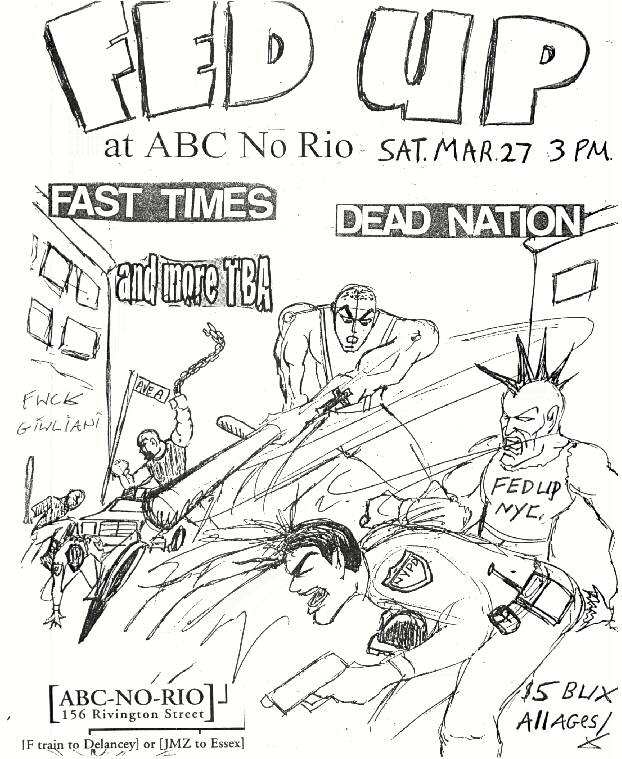 FED UP
at ABC No Rio SAT. MAR. 27 3 PM.
FAST TIMES
DEAD NATION
and more TBA
AVE A
FUCK
GIULIANI
FED UP
NYC.
NYPD
$5 BUX
All AGES!
[ABC-NO-RIO]
156 Rivington Street
[F train to Delancey] or [JMZ to Essex]